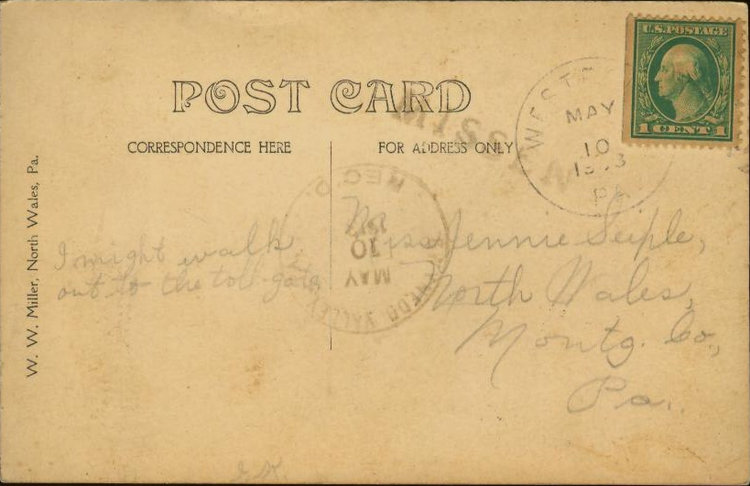 POST CARD
CORRESPONDENCE HERE
FOR ADDRESS ONLY
W. W. Miller, North Wales, Pa.
U.S. POSTAGE
1 CENT 1
WEST
MAY
10
PA
MISSENT
REC'D.
MAY
10
VALLEY
I might walk
out to the toll-gate
Miss Jennie Seiple,
North Wales,
Montg. Co.,
Pa.